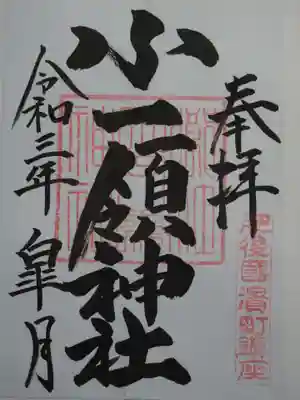 奉拝
肥後國濱町鎮座
小一領神社
令和三年 皐月